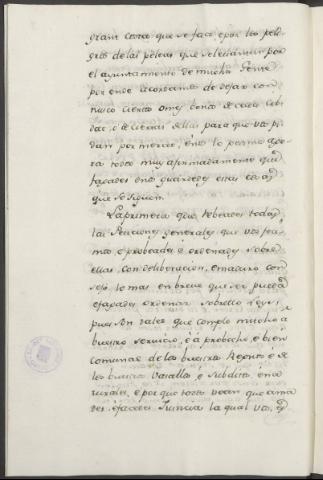 grant costa que se face, e por los peli-
gros de las peleas que se levantan por
el ayuntamiento de mucha Gente
por ende acordamos de dejar con-
nusco ciertos omes bonos de cada Cib-
dat, o de ciertas dellas para que vos pi-
dan por merced, é nos lo pedimos ago-
ra todos muy afirmadamente que
fagades é nos guardedes estas cosas
que se siguen.
La primera que veades todas
las Peticiones generales que vos fea-
mos é probeades é ordenedes sobre
ellas con deliberacion, é maduro con-
sejo lo mas en breve que ser pueda
é fagades ordenar sobrello Leys,
pues son tales que cumple mucho á
vuestro servicio, é á probecho, é bien
comunal de los vuestros Regnos é de
los vuestros Vasallos é Subditos é na-
turales, é por que todos vean que ama-
des é facedes Justicia la qual vos,